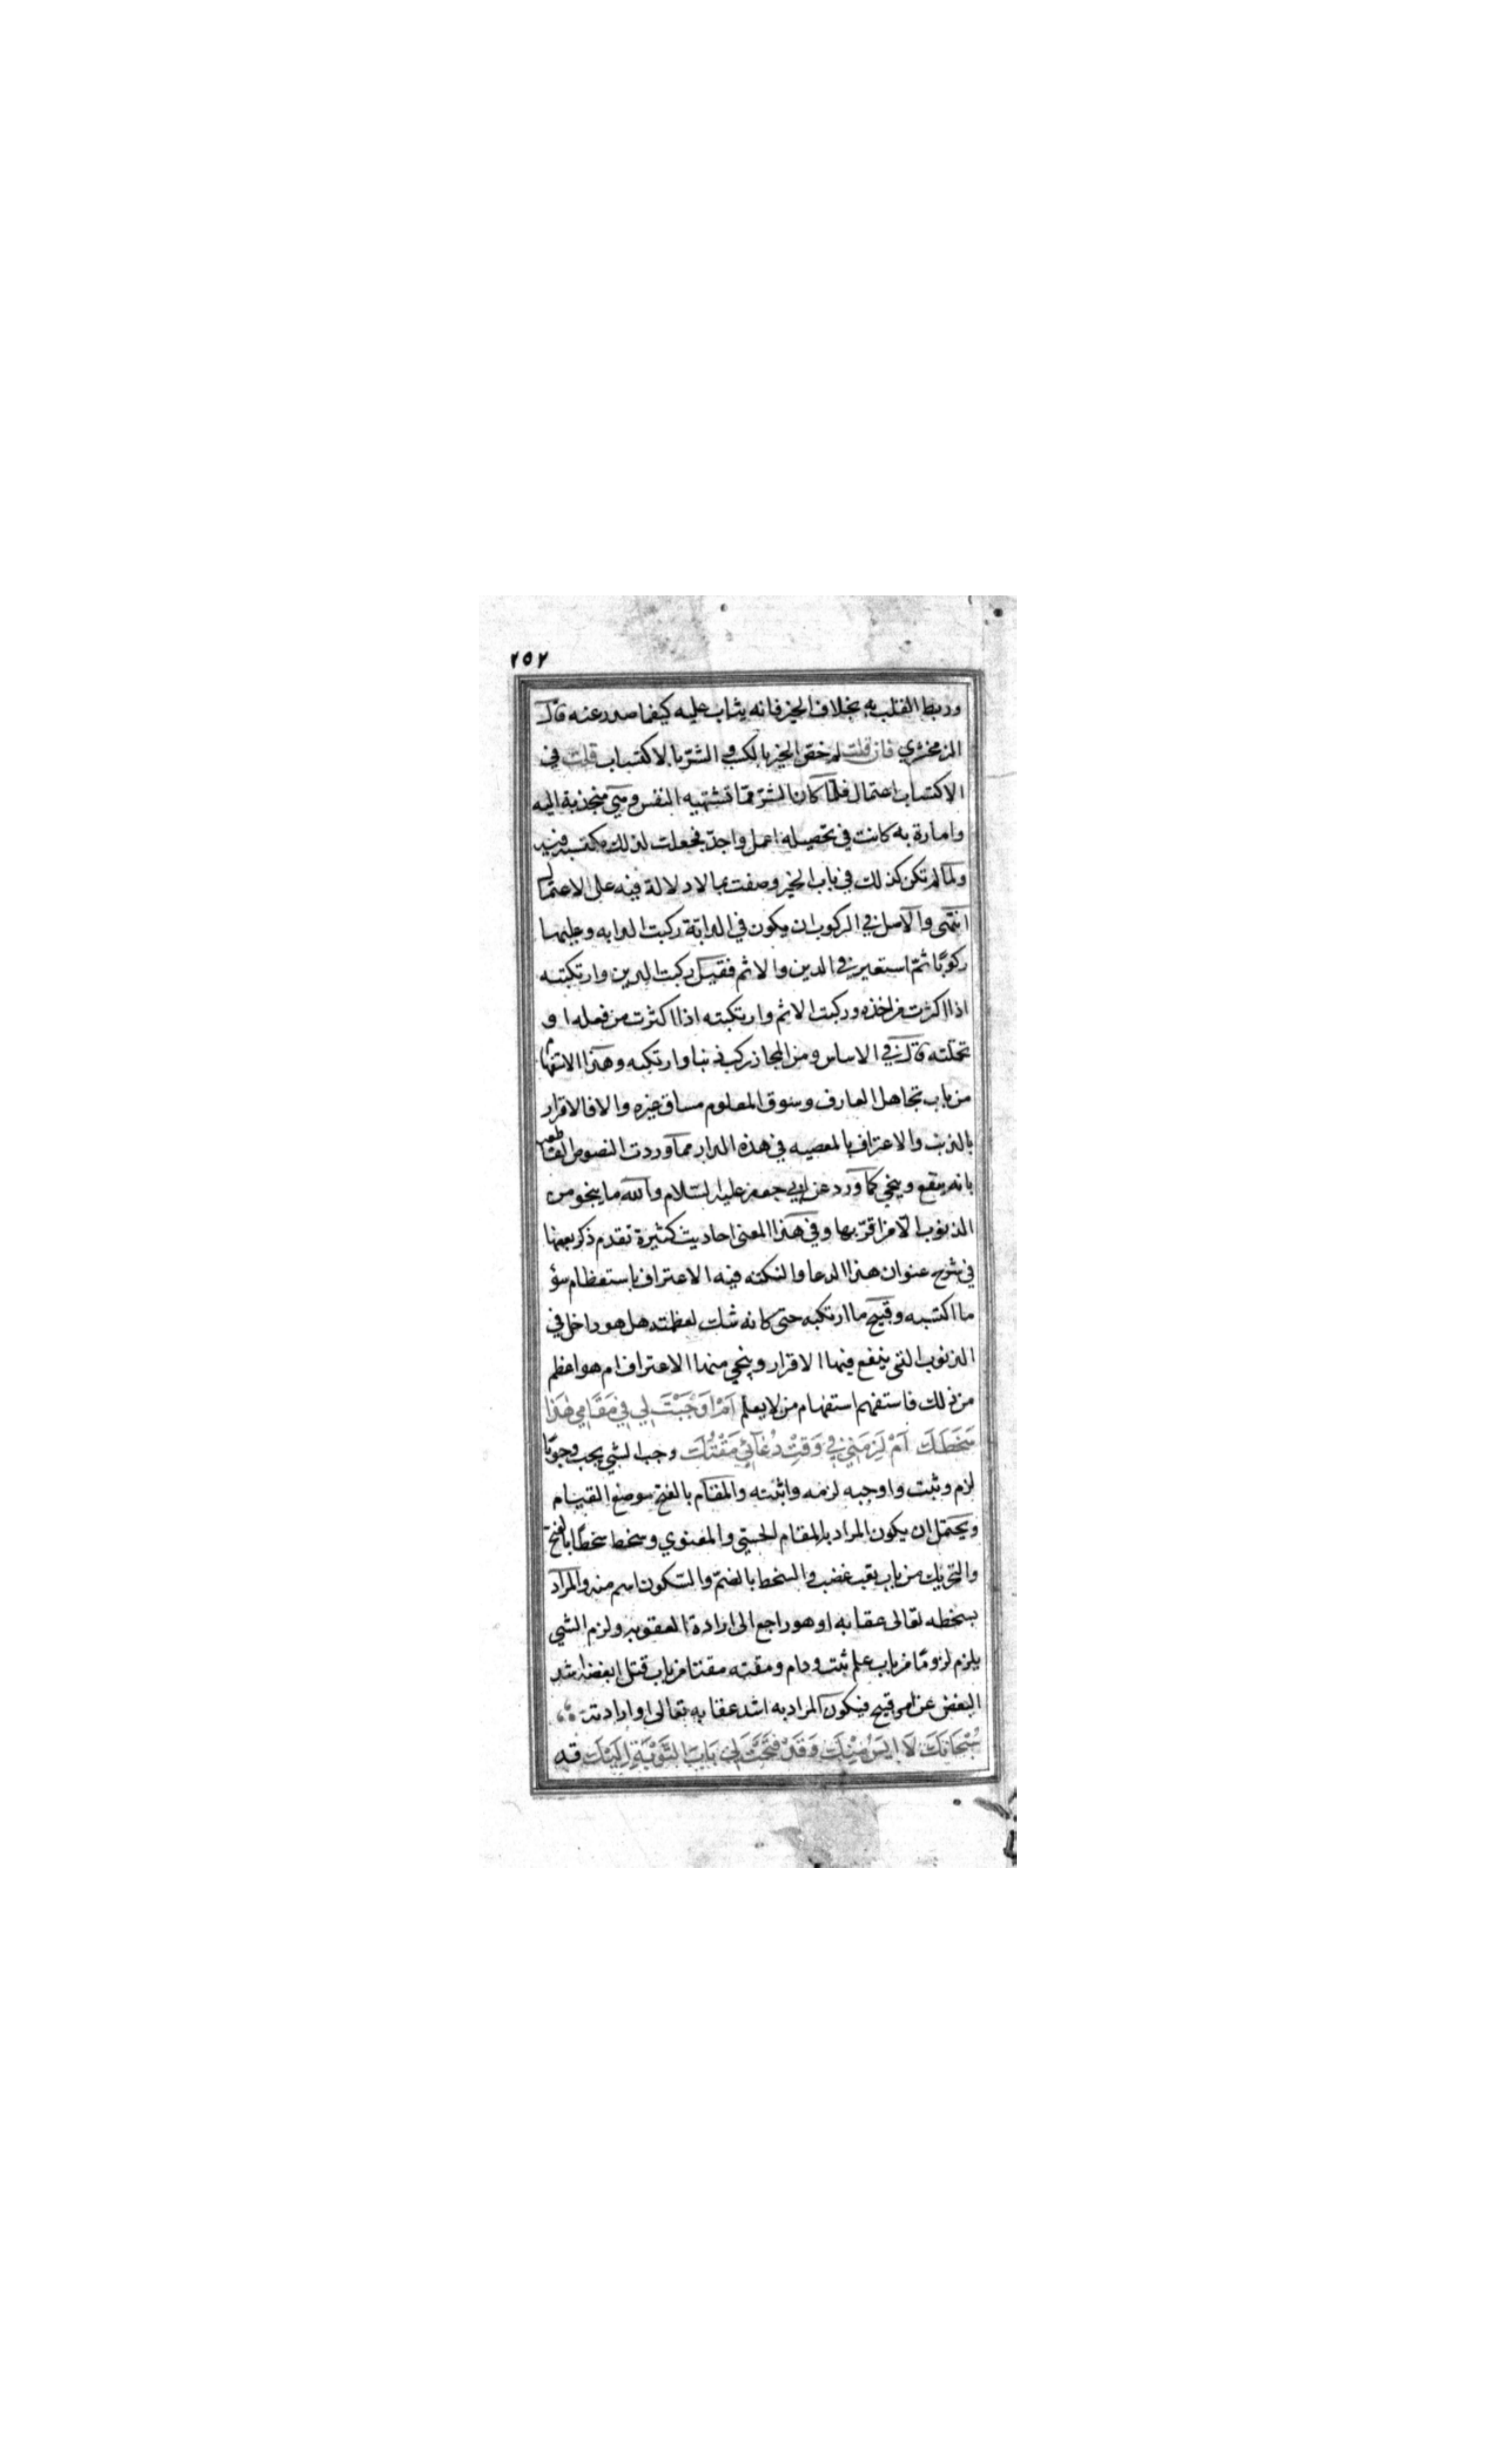 ٢٥٢
وربط القلب به بخلاف الخير فانه يثاب عليه كيفما صدر عنه قال
الزمخشري فان قلت لم خص الخير بالكسب و الشر بالاكتساب قلت في
الاكتساب اعتمال فلما كان الشر مما تشتهيه النفس وهي منجذبة اليه
وامارة به كانت في تحصيله اعمل واجد فجعلت لذلك مكتسبة فيه
ولما لم تكن كذلك في باب الخير وصفت بما لا دلالة فيه على الاعتمال
انتهى والاصل في الركوب ان يكون في الدابة ركبت الدابه وعليها
ركوبًا ثم استعير في الدين والاثم فقيل ركبت الدين وارتكبته
اذا اكثرت من اخذه وركبت الاثم وارتكبته اذا اكثرت من فعله او
تحملته قال في الاساس ومن المجاز ركب ذنبا وارتكبه وهذا الاستفهام
من باب تجاهل العارف وسوق المعلوم مساق غيره والا فالاقرار
بالذنب والاعتراف بالمعصيه في هذه الدار مما وردت النصوص القاطعه
بانه ينفع وينجي كما ورد عن ابي جعفر عليه السلام والله ما ينجو من
الذنوب الا من اقر بها وفي هذا المعنى احاديث كثيرة تقدم ذكر بعضها
في شرح عنوان هذا الدعا والنكته فيه الاعتراف باستعظام سؤ
ما اكتسبه وقبيح ما ارتكبه حتى كانه شك لعظمته هل هو داخل في
الذنوب التى ينفع فيها الاقرار وينجي منها الاعتراف ام هو اعظم
من ذلك فاستفهم استفهام من لا يعلم اَمْ اَوْجَبْتَ لِي فِي مَقَامِي هٰذَا
سَخَطَكَ اَمْ لَزِمَنِي فِي وَقْتِ دُعَآئِي مَقْتُكَ وجب الشي يجب وجوبًا
لازم وثبت واوجبه لزمه واثبته والمقام بالفتح موضع القيام
ويحتمل ان يكون المراد بالمقام الحسي والمعنوي وسخط سخطًا بالفتح
والتحريك من باب تعب غضب والسخط بالضم والسكون اسم منه والمراد
بسخطه تعالى عقابه او هو راجع الى ارادة العقوبه ولزم الشي
يلزم لزومًا من باب علم ثبت ودام ومقته مقتا من باب قتل ابغضه اشد
البغض عن امر قبيح فيكون المراد به اشد عقابه تعالى او ارادته
سُبْحَانَكَ لَا اَيْئَسُ مِنْكَ وَقَدْ فَتَحْتَ لِي بَابَ التَّوْبَةِ اِلَيْكَ قد